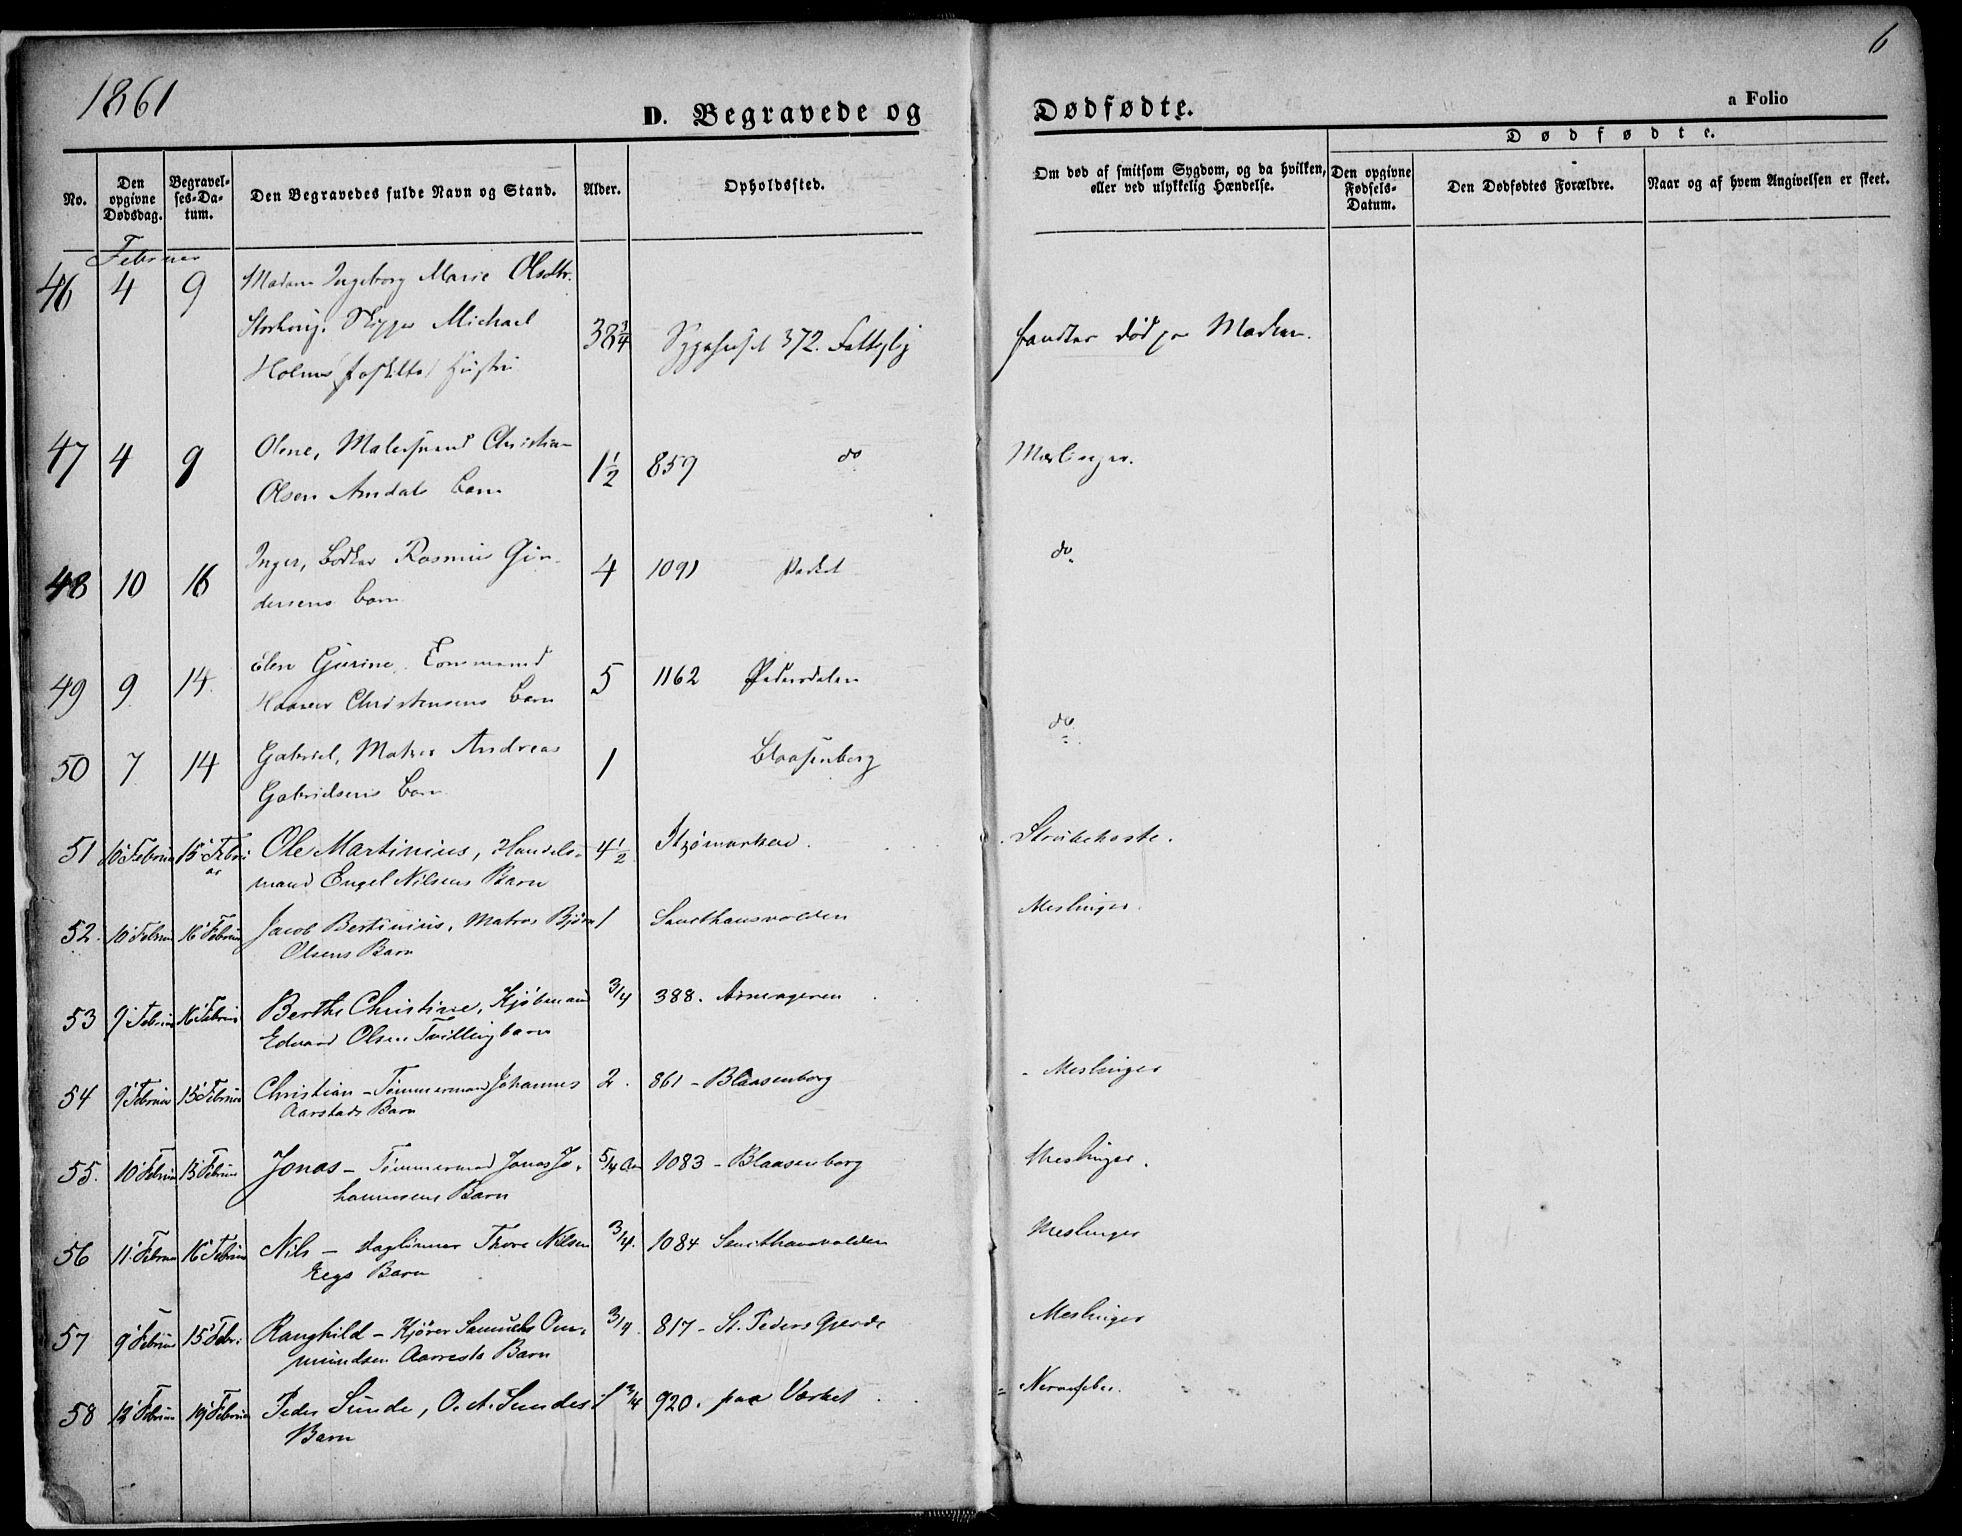 1861
6
D. Begravede og Dødfødte.
a Folio
No.
Den opgivne Dødsdag.
Begravelses-Datum.
Den Begravedes fulde Navn og Stand.
Alder.
Opholdssted.
Om død af smitsom Sygdom, og da hvilken, eller ved ulykkelig Hændelse.
Dødfødte.
Den opgivne Fødsels-Datum.
Den Dødfødtes Forældre.
Naar og af hvem Angivelsen er skeet.
Februar
46 4 9 Madam Ingeborg Marie Olsdtr.
Skipper Michael 38¾ Sygehuset 372. fandtes død
Holms Hustru
47 4 9 Olene, Christian 1½ 859 do Meslinger.
Olsen Barn
48 10 16 Inger, Bødker Rasmus Gun- 4 1091 do
dersens Barn
49 9 14 Elen Gurine, 5 1162 Pedersdalen
Christensens Barn
50 7 14 Gabriel, Matros Andreas 1 Blaasenborg do
Gabrielsens Barn
51 10 Februar 15 Februar Ole Martinius, Handels- 4½ Strubehoste.
mand Engel Nilsens Barn
52. 10 Februar 16 Februar Jacob Bertinius, Matros Bjørn 1 Sancthansvolden Meslinger.
Olsens Barn
53 9 Februar 16 Februar Berthe Christine, Kjøbmand 3/4 388. Arneageren
Edvard Olsens Tvillingbarn
54 9 Februar 15 Februar Christian – Tømmermand Johannes 2. 861 – Blaasenborg Meslinger
Aarstads Barn
55. 10 Februar 15 Februar Jonas – Tømmermand Jonas Jo- 5/4 Aar 1083 – Blaasenborg Meslinger.
hannesens Barn
56 11 Februar 16 Februar Nils – Daglønner Thore Nilsen 3/4. 1084 Sancthansvolden Meslinger
Eegs Barn
57 9 Februar 15 Febr. Ranghild – Kjører Samuel Om- 3/4. 817 – St. Peders Gjerde Meslinger
mundsen Aarrests Barn
58 12 Februar 19 Februar Peder Sunde, O. A. Sundes 1 3/4 920. paa Værket Nervefeber.
Barn